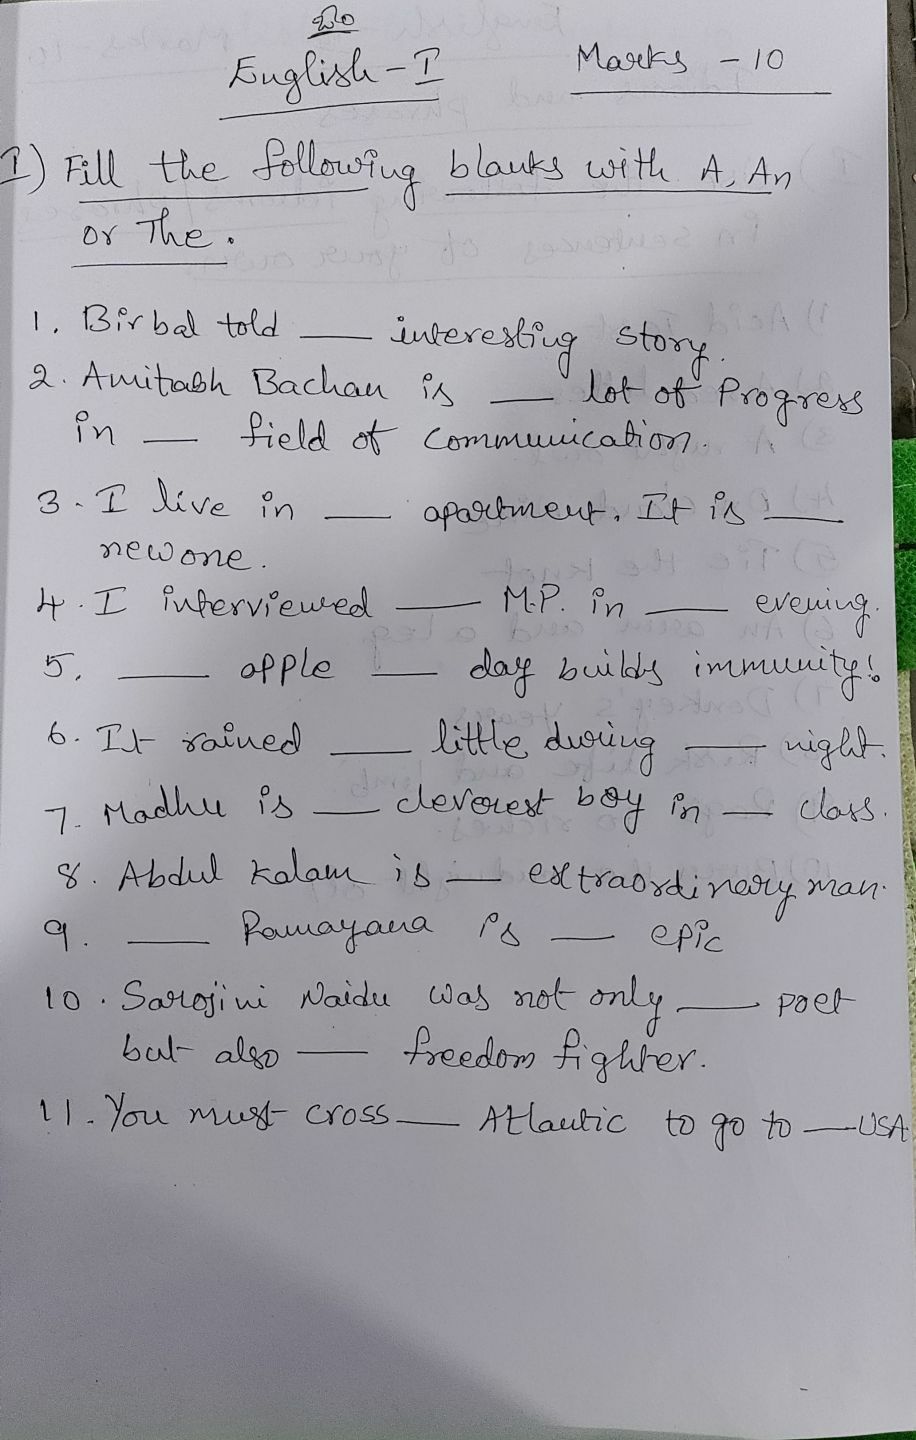 ಓಂ
English-I Marks - 10
I) Fill the following blanks with A, An
or The.
1. Birbal told ___ interesting story.
2. Amitabh Bachan is ___ lot of Progress
in ___ field of communication.
3. I live in ___ apartment. It is ___
new one.
4. I interviewed ___ M.P. in ___ evening.
5. ___ apple ___ day builds immunity!
6. It rained ___ little during ___ night.
7. Madhu is ___ cleverest boy in ___ class.
8. Abdul Kalam is ___ extraordinary man.
9. ___ Ramayana is ___ epic
10. Sarojini Naidu was not only ___ poet
but also ___ freedom fighter.
11. You must cross ___ Atlantic to go to ___ USA.